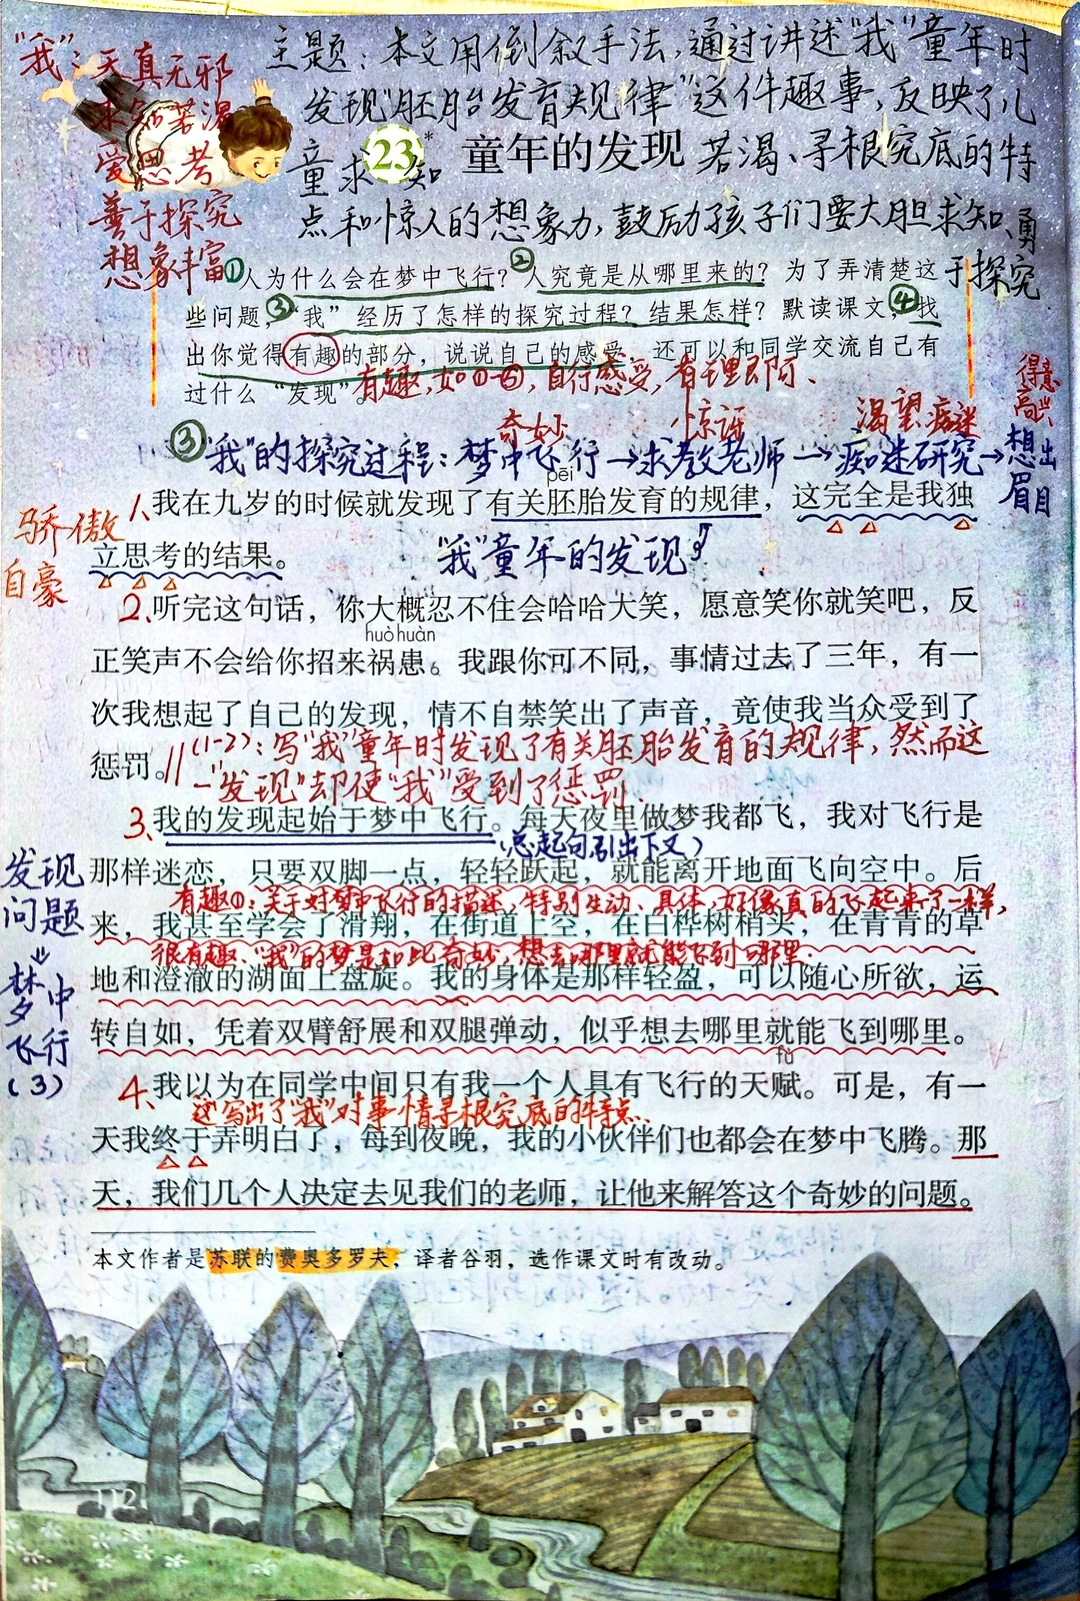 "我"：天真无邪
求知若渴
爱思考
善于探究
想象丰富
主题：本文用倒叙手法，通过讲述"我"童年时
发现"胚胎发育规律"这件趣事，反映了儿
童求知若渴、寻根究底的特
点和惊人的想象力，鼓励孩子们要大胆求知、勇
于探究
23* 童年的发现
①人为什么会在梦中飞行？②人究竟是从哪里来的？为了弄清楚这
些问题，③"我"经历了怎样的探究过程？结果怎样？默读课文，④找
出你觉得有趣的部分，说说自己的感受，还可以和同学交流自己有
过什么"发现"。
有趣，如①—④，自行感受，有理即可、
奇妙 惊讶 渴望 痴迷
得意
高兴
③"我"的探究过程：梦中飞行→求教老师→痴迷研究→想出
眉目
pēi
1、我在九岁的时候就发现了有关胚胎发育的规律，这完全是我独
立思考的结果。
骄傲
自豪
"我"童年的发现
2、听完这句话，你大概忍不住会哈哈大笑，愿意笑你就笑吧，反
huò huàn
正笑声不会给你招来祸患。我跟你可不同，事情过去了三年，有一
次我想起了自己的发现，情不自禁笑出了声音，竟使我当众受到了
惩罚。
//(1-2)：写"我"童年时发现了有关胚胎发育的规律，然而这
一"发现"却使"我"受到了惩罚.
3、我的发现起始于梦中飞行。每天夜里做梦我都飞，我对飞行是
(总起句,引出下文)
那样迷恋，只要双脚一点，轻轻跃起，就能离开地面飞向空中。后
有趣①：关于对梦中飞行的描述，特别生动、具体，好像真的飞起来了一样，
来，我甚至学会了滑翔，在街道上空，在白桦树梢头，在青青的草
很有趣、"我"的梦是如此奇妙，想去哪里就能飞到哪里.
地和澄澈的湖面上盘旋。我的身体是那样轻盈，可以随心所欲，运
转自如，凭着双臂舒展和双腿弹动，似乎想去哪里就能飞到哪里。
发现
问题
⇓
梦中
飞行
(3)
fù
4、我以为在同学中间只有我一个人具有飞行的天赋。可是，有一
这写出了"我"对事情寻根究底的特点、
天我终于弄明白了，每到夜晚，我的小伙伴们也都会在梦中飞腾。那
天，我们几个人决定去见我们的老师，让他来解答这个奇妙的问题。
本文作者是苏联的费奥多罗夫，译者谷羽，选作课文时有改动。
112